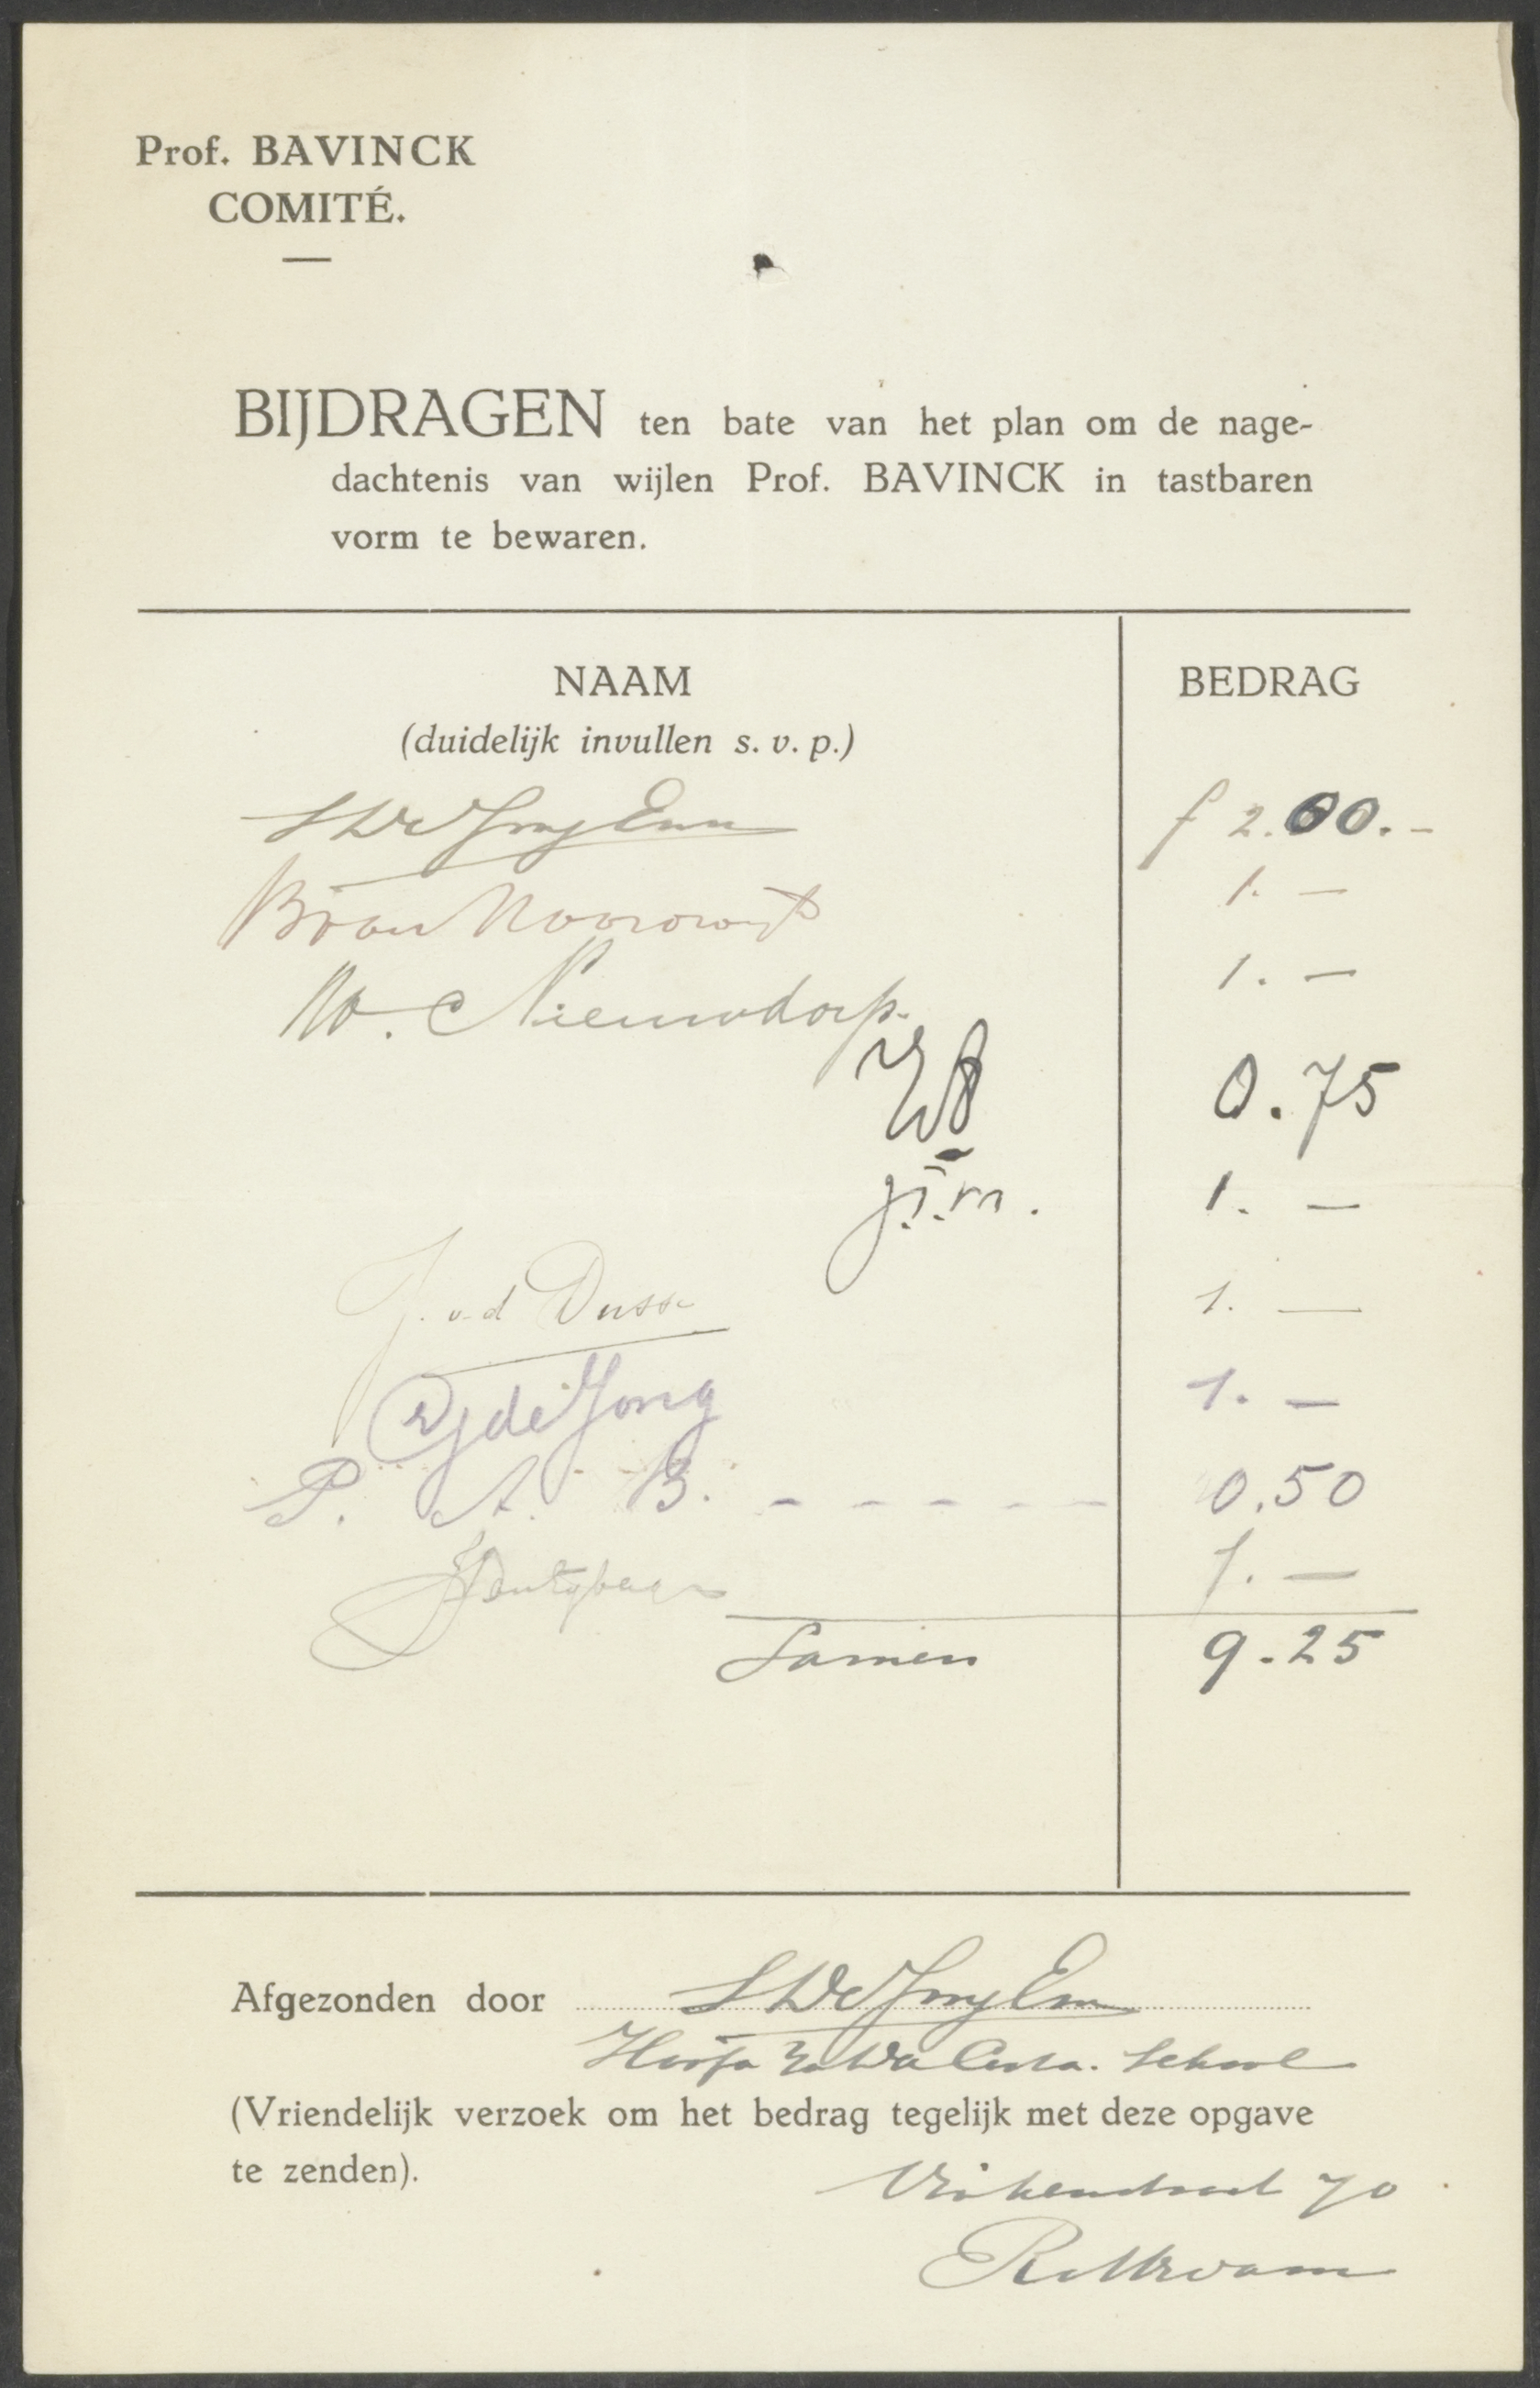 Prof. BAVINCK
COMITÉ.
BIJDRAGEN ten bate van het plan om de nage-
dachtenis van wijlen Prof. BAVINCK in tastbaren
vorm te bewaren.
NAAM BEDRAG
(duidelijk invullen s. v. p.)
f 2.00.-
1. -
W. C. Nieuwdorp. 1. -
0.75
1. -
J. v. d Dusse 1. -
de Jong 1. -
P. A. B. - - - - - 0.50
1. -
Samen 9.25
Afgezonden door
School
(Vriendelijk verzoek om het bedrag tegelijk met deze opgave
te zenden).
70
Rotterdam